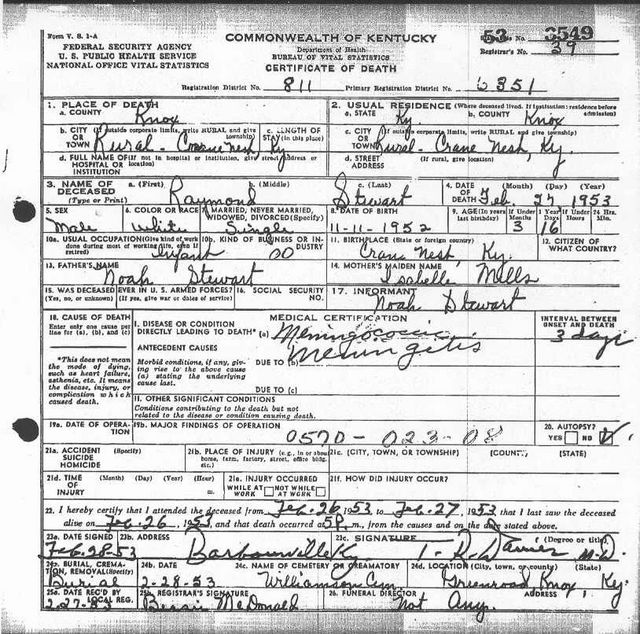 Form V. S. 1-A
COMMONWEALTH OF KENTUCKY
53 3549
FEDERAL SECURITY AGENCY
Department of Health
Registrar's No. 39
U. S. PUBLIC HEALTH SERVICE
BUREAU OF VITAL STATISTICS
NATIONAL OFFICE VITAL STATISTICS
CERTIFICATE OF DEATH
Registration District No. 811 Primary Registration District No. 6351
1. PLACE OF DEATH
a. COUNTY Knox
2. USUAL RESIDENCE (Where deceased lived. If institution: residence before admission)
a. STATE Ky. b. COUNTY Knox
b. CITY (If outside corporate limits, write RURAL and give township)
OR TOWN Rural - Crane Nest, Ky
c. LENGTH OF STAY (in this place)
c. CITY (If outside corporate limits, write RURAL and give township)
OR TOWN Rural - Crane Nest, Ky.
d. FULL NAME OF (If not in hospital or institution, give street address or location)
HOSPITAL OR INSTITUTION
d. STREET ADDRESS (If rural, give location)
3. NAME OF DECEASED (Type or Print)
a. (First) Raymond b. (Middle) c. (Last) Stewart
4. DATE OF DEATH (Month) (Day) (Year) Feb. 27 1953
5. SEX Male
6. COLOR OR RACE White
7. MARRIED, NEVER MARRIED, WIDOWED, DIVORCED (Specify) Single
8. DATE OF BIRTH 11-11-1952
9. AGE (In years last birthday) If Under 1 Year Months 3 Days 16 If Under 24 Hrs. Hours Min.
10a. USUAL OCCUPATION (Give kind of work done during most of working life, even if retired) Infant
10b. KIND OF BUSINESS OR INDUSTRY 00
11. BIRTHPLACE (State or foreign country) Crane Nest, Ky.
12. CITIZEN OF WHAT COUNTRY?
13. FATHER'S NAME Noah Stewart
14. MOTHER'S MAIDEN NAME Isabelle Mills
15. WAS DECEASED EVER IN U. S. ARMED FORCES? (Yes, no, or unknown) (If yes, give war or dates of service)
16. SOCIAL SECURITY NO.
17. INFORMANT Noah Stewart
18. CAUSE OF DEATH
Enter only one cause per line for (a), (b), and (c)
MEDICAL CERTIFICATION
INTERVAL BETWEEN ONSET AND DEATH
I. DISEASE OR CONDITION DIRECTLY LEADING TO DEATH* (a) Meningococcic 3 days
ANTECEDENT CAUSES Meningitis
*This does not mean the mode of dying, such as heart failure, asthenia, etc. It means the disease, injury, or complication which caused death.
Morbid conditions, if any, giving rise to the above cause (a) stating the underlying cause last.
DUE TO (b)
DUE TO (c)
II. OTHER SIGNIFICANT CONDITIONS
Conditions contributing to the death but not related to the disease or condition causing death.
19a. DATE OF OPERATION
19b. MAJOR FINDINGS OF OPERATION
0570-023-08
20. AUTOPSY? YES NO
21a. ACCIDENT SUICIDE HOMICIDE (Specify)
21b. PLACE OF INJURY (e.g., in or about home, farm, factory, street, office bldg., etc.)
21c. (CITY, TOWN, OR TOWNSHIP) (COUNTY) (STATE)
21d. TIME OF INJURY (Month) (Day) (Year) (Hour)
21e. INJURY OCCURRED WHILE AT WORK NOT WHILE AT WORK
21f. HOW DID INJURY OCCUR?
22. I hereby certify that I attended the deceased from Feb. 26 1953 to Feb. 27, 1953 that I last saw the deceased
alive on Feb. 26, 1953, and that death occurred at 5P. m., from the causes and on the date stated above.
23a. DATE SIGNED Feb. 28-53
23b. ADDRESS Barbourville Ky
23c. SIGNATURE (Degree or title) M.D.
24a. BURIAL, CREMATION, REMOVAL (Specify) Burial
24b. DATE 2-28-53
24c. NAME OF CEMETERY OR CREMATORY Williamson Cem.
24d. LOCATION (City, town, or county) (State) Greenroad, Knox, Ky.
25a. DATE REC'D BY LOCAL REG. 2-27-53
25b. REGISTRAR'S SIGNATURE Bessie McDonald
26. FUNERAL DIRECTOR Not Any.
ADDRESS